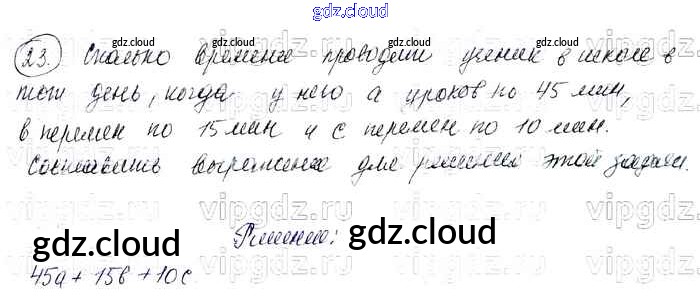 gdz.cloud
23. Сколько времени проводит ученик в школе в
gdz.cloud gdz.cloud gdz.cloud
тот день, когда у него a уроков по 45 мин,
в перемен по 15 мин и с перемен по 10 мин.
Составить выражение для решения этой задачи.
vipgdz vipgdz vipgdz vipgdz
gdz.cloud Решение: gdz.cloud
45a + 15в + 10с
vipgdz vipgdz vipgdz vipgdz